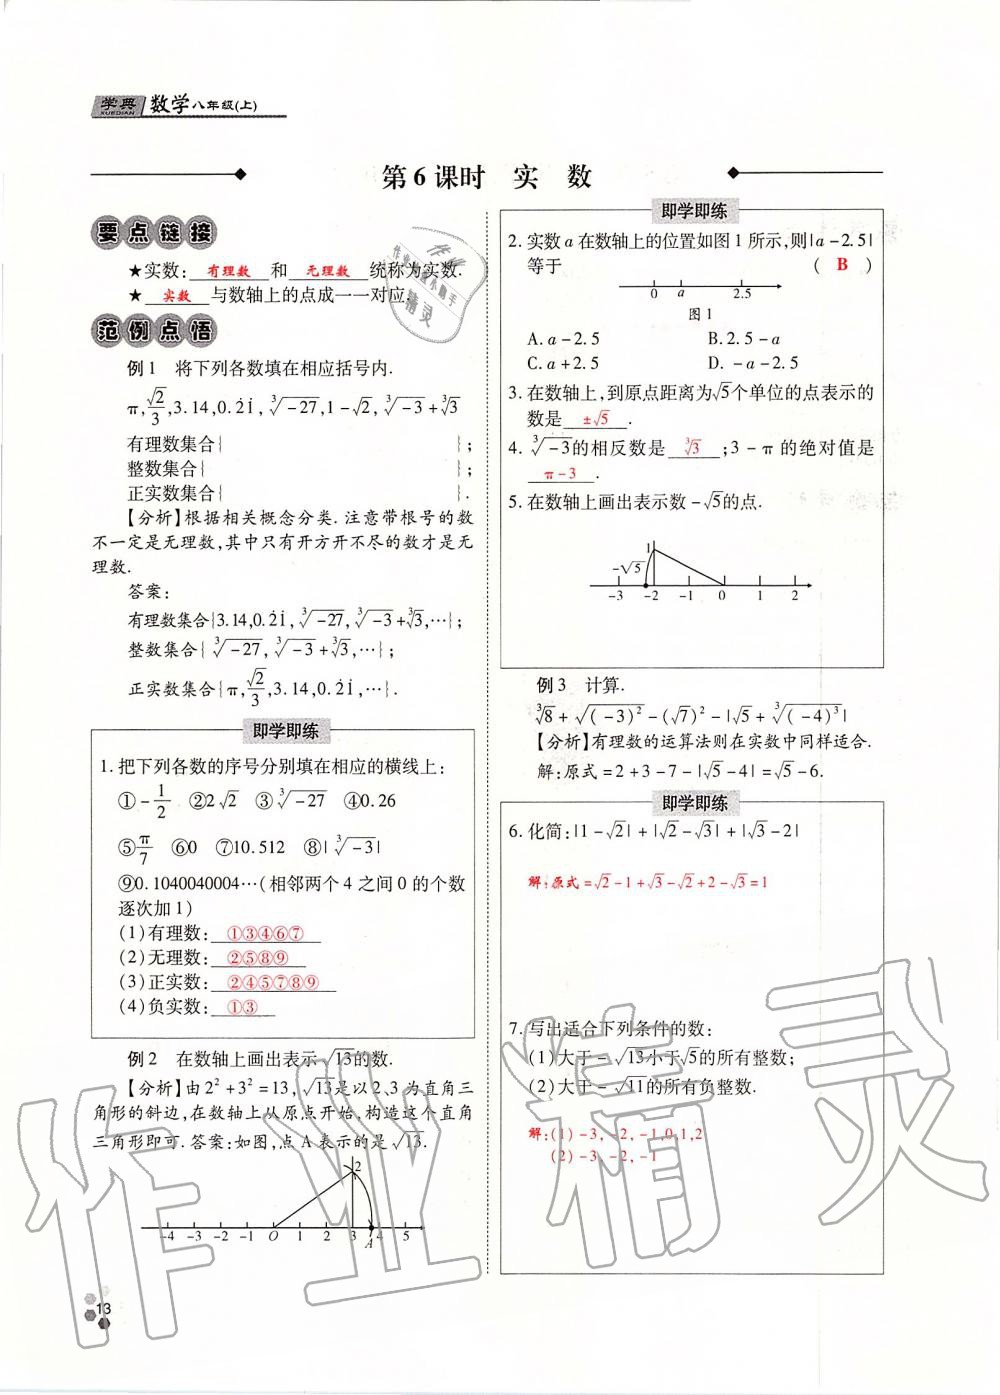 学典 XUEDIAN 数学八年级(上)
第6课时 实 数
要点链接
★实数:有理数 和 无理数 统称为实数.
★ 实数 与数轴上的点成一一对应.
范例点悟
例1 将下列各数填在相应括号内.
π,√2/3,3.14,0.2̇1̇,∛-27,1-√2,∛-3+∛3
有理数集合{ };
整数集合{ };
正实数集合{ }.
【分析】根据相关概念分类.注意带根号的数
不一定是无理数,其中只有开方开不尽的数才是无
理数.
答案:
有理数集合{3.14,0.2̇1̇,∛-27,∛-3+∛3,…};
整数集合{∛-27,∛-3+∛3,…};
正实数集合{π,√2/3,3.14,0.2̇1̇,…}.
即学即练
1.把下列各数的序号分别填在相应的横线上:
①-1/2 ②2√2 ③∛-27 ④0.26
⑤π/7 ⑥0 ⑦10.512 ⑧|∛-3|
⑨0.1040040004…(相邻两个4之间0的个数
逐次加1)
(1)有理数:①③④⑥⑦
(2)无理数:②⑤⑧⑨
(3)正实数:②④⑤⑦⑧⑨
(4)负实数:①③
例2 在数轴上画出表示√13的数.
【分析】由2²+3²=13,√13是以2、3为直角三
角形的斜边,在数轴上从原点开始,构造这个直角
三角形即可.答案:如图,点A表示的是√13.
2
-4 -3 -2 -1 O 1 2 3 A 4 5
13
即学即练
2.实数a在数轴上的位置如图1所示,则|a-2.5|
等于 ( B )
0 a 2.5
图1
A.a-2.5 B.2.5-a
C.a+2.5 D.-a-2.5
3.在数轴上,到原点距离为√5个单位的点表示的
数是 ±√5 .
4.∛-3的相反数是 ∛3 ;3-π的绝对值是
π-3 .
5.在数轴上画出表示数-√5的点.
1
-√5
-3 -2 -1 0 1 2
例3 计算.
∛8+√(-3)²-(√7)²-|√5+∛(-4)³|
【分析】有理数的运算法则在实数中同样适合.
解:原式=2+3-7-|√5-4|=√5-6.
即学即练
6.化简:|1-√2|+|√2-√3|+|√3-2|
解:原式=√2-1+√3-√2+2-√3=1
7.写出适合下列条件的数:
(1)大于-√13小于√5的所有整数;
(2)大于-√11的所有负整数.
解:(1)-3,-2,-1,0,1,2
(2)-3,-2,-1
作业精灵